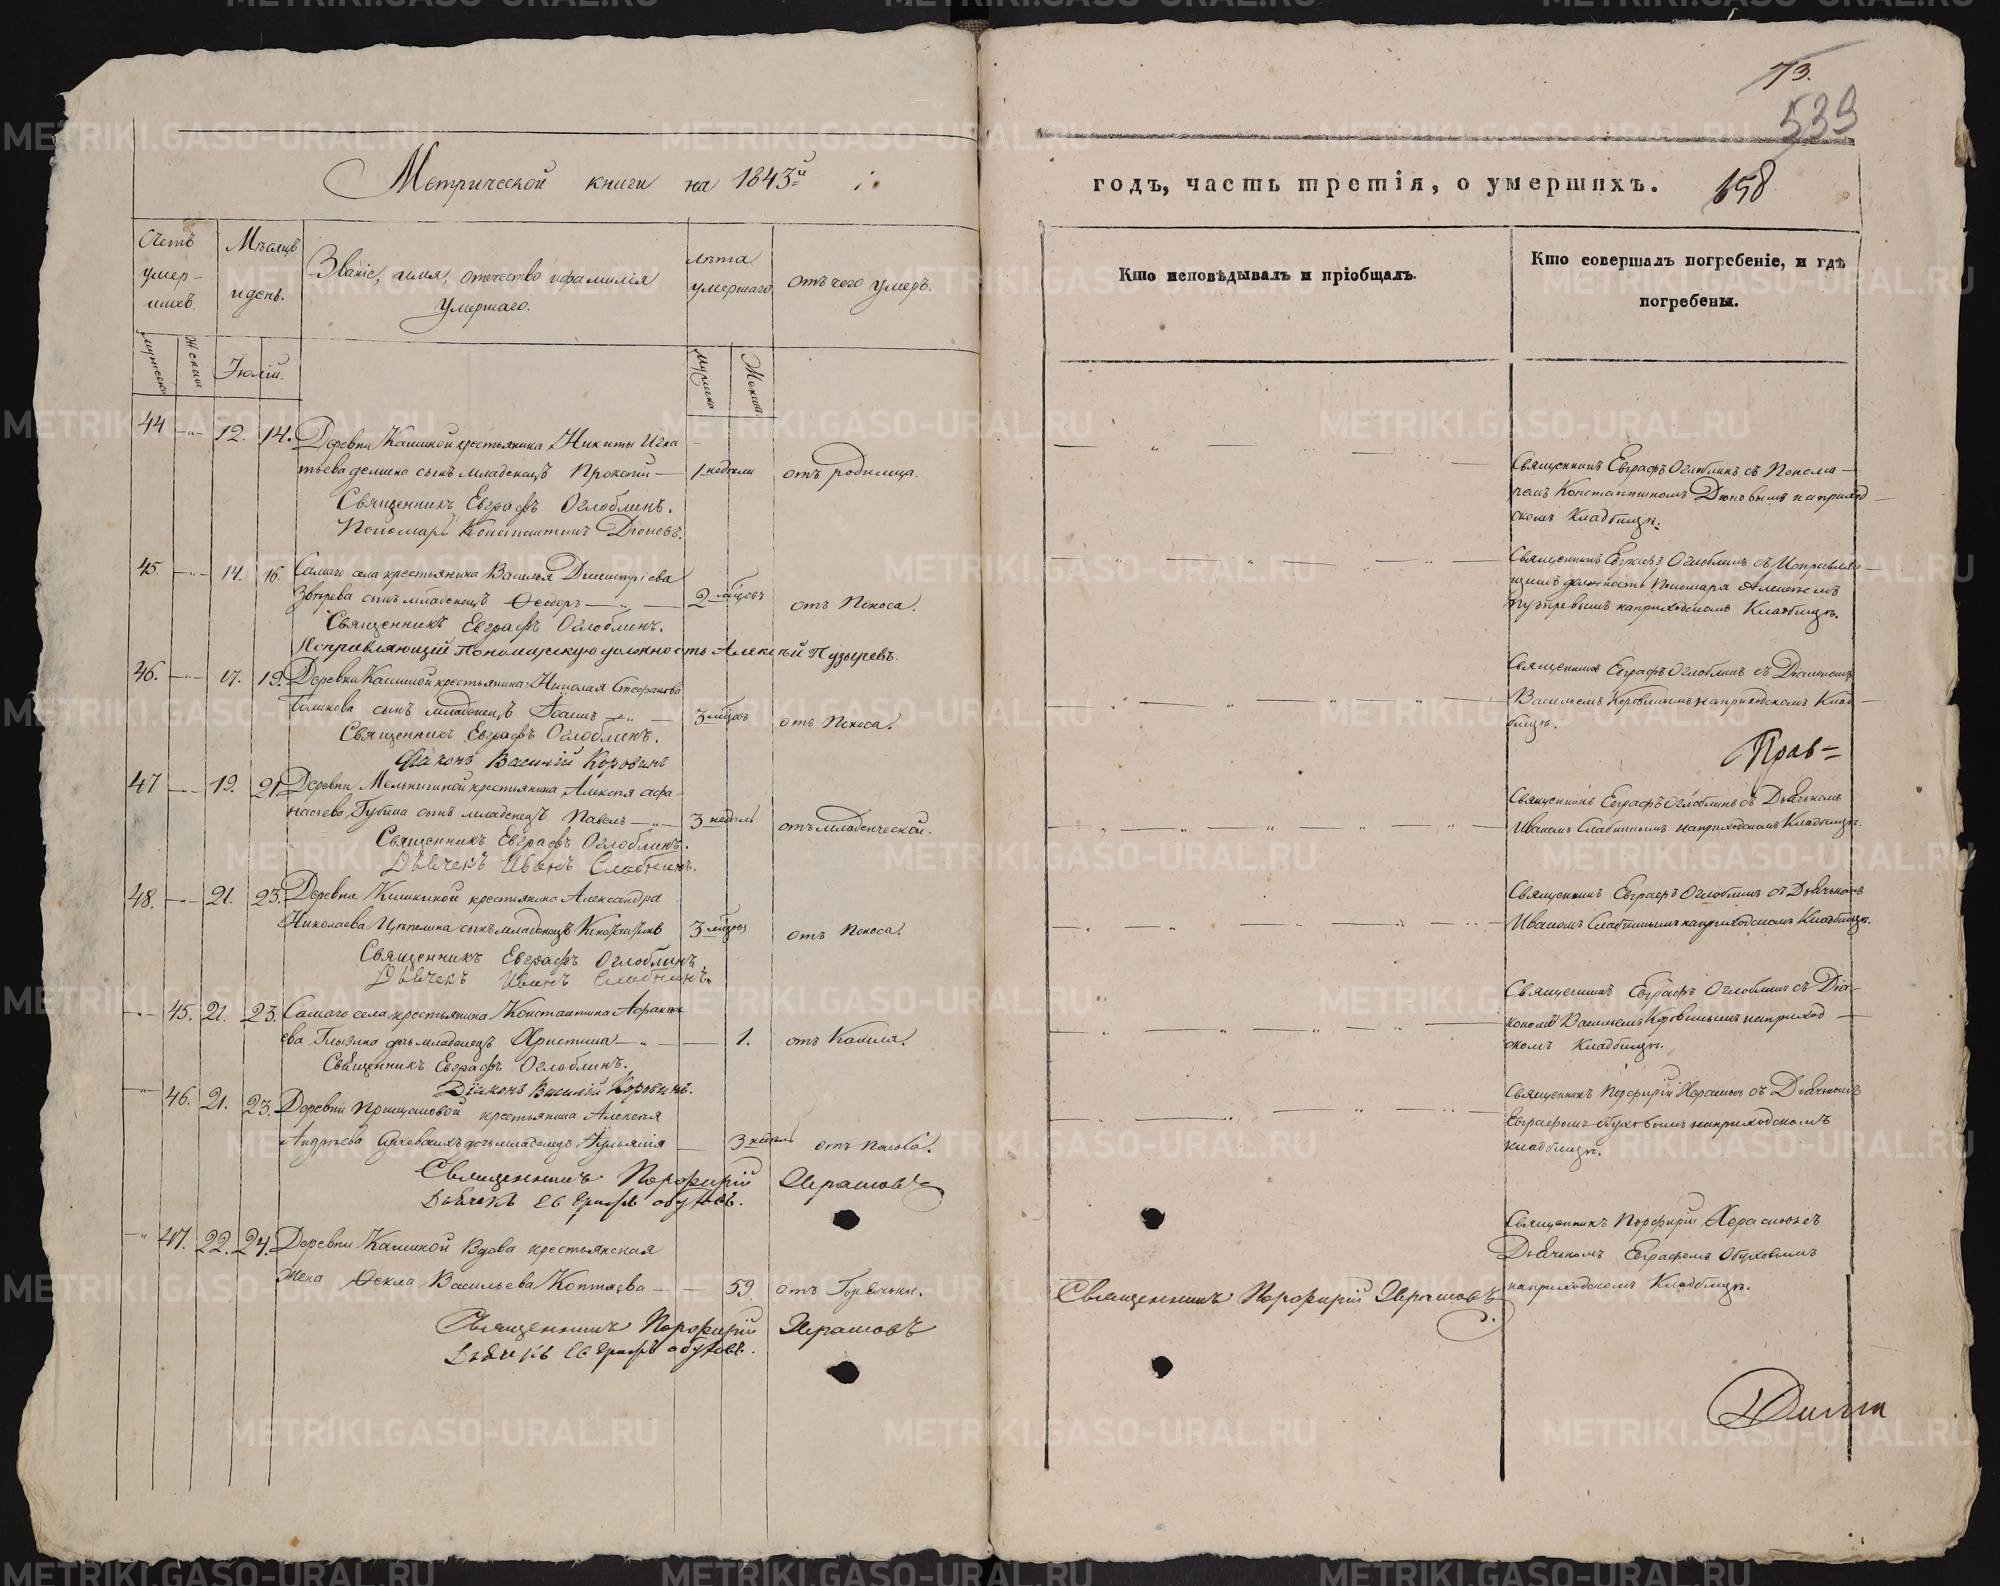 Метрической книги на 1843й
Счетъ умер-шихъ.
Мѣсяцъ и день.
Званіе, имя, отчество и фамилія умершаго.
лѣта умершаго
отъ чего умеръ.
мужеска
Женска
Іюлій.
мужеска
Женска
44 12. 14. Деревни Кашиной крестьянина Никиты Игна
тьева сынъ младенецъ Прокопій 1 недели отъ родимца.
Священникъ Евграфъ Оглоблинъ.
Пономарь Константинъ
45. 14. 16. Самаго села крестьянина Василья Дмитріева
сынъ младенецъ Ѳеодоръ 2 мѣсецъ отъ Поноса.
Священникъ Евграфъ Оглоблинъ.
Исправляющій Пономарскую должность Алексѣй Пузыревъ.
46. 17. 19. Деревни Кашиной крестьянина Николая Стефанова
сынъ младенецъ 3 мѣсецъ отъ Поноса.
Священникъ Евграфъ Оглоблинъ.
Діаконъ Василій Коровинъ
47 19. 21 Деревни крестьянина Алексѣя Афа-
насьева Губина сынъ младенецъ Павелъ 3 недѣль отъ младенческой.
Священникъ Евграфъ Оглоблинъ.
Дьячекъ Иванъ Слабнинъ.
48. 21. 23. Деревни крестьянина Александра
Николаева сынъ младенецъ 3 мѣсец отъ Поноса.
Священникъ Евграфъ Оглоблинъ.
Дьячекъ Иванъ Слабнинъ.
45. 21. 23. Самаго села крестьянина Константина
дочь младенецъ Христина 1. отъ Кашля.
Священникъ Евграфъ Оглоблинъ.
Діаконъ Василій Коровинъ.
46. 21. 23. Деревни крестьянина Алексѣя
Андреева дочь младенецъ 3 недѣль отъ поноса.
Священникъ Порфирій Хераmовъ
Дьячекъ Евграфъ Обуховъ.
47. 22. 24. Деревни Кашиной Вдова крестьянская
жена Ѳекла Васильева Коптяева 59. отъ Горячьки.
Священникъ Порфирій
Дьячекъ Евграфъ Обуховъ.
73.
539
годъ, часть третія, о умершихъ. 158
Кто исповѣдывалъ и пріобщалъ.
Кто совершалъ погребеніе, и гдѣ
погребены.
Священникъ Евграфъ Оглоблинъ съ Понома-
ремъ Константиномъ на приход
скомъ Кладбищѣ.
Священникъ Евграфъ Оглоблинъ съ Исправляю-
щимъ должность Пономаря Алексѣемъ
Пузыревымъ на приходскомъ Кладбищѣ.
Священникъ Евграфъ Оглоблинъ съ Діакономъ
Васильемъ Коровинымъ на приходскомъ Клад-
бищѣ.
Священникъ Евграфъ Оглоблинъ съ Дьячькомъ
Иваномъ Слабнинымъ на приходскомъ Кладбищѣ.
Священникъ Евграфъ Оглоблинъ съ Дьячькомъ
Иваномъ Слабнинымъ на приходскомъ Кладбищѣ.
Священникъ Евграфъ Оглоблинъ съ Діа-
кономъ Васильемъ Коровинымъ на приход
скомъ Кладбищѣ.
Священникъ Порфирій съ Дьячькомъ
Евграфомъ Обуховымъ на приходскомъ
Кладбищѣ.
Священникъ Порфирій съ
Дьячькомъ Евграфомъ Обуховымъ
на приходскомъ Кладбищѣ.
Священникъ Порфирій
METRIKI.GASO-URAL.RU